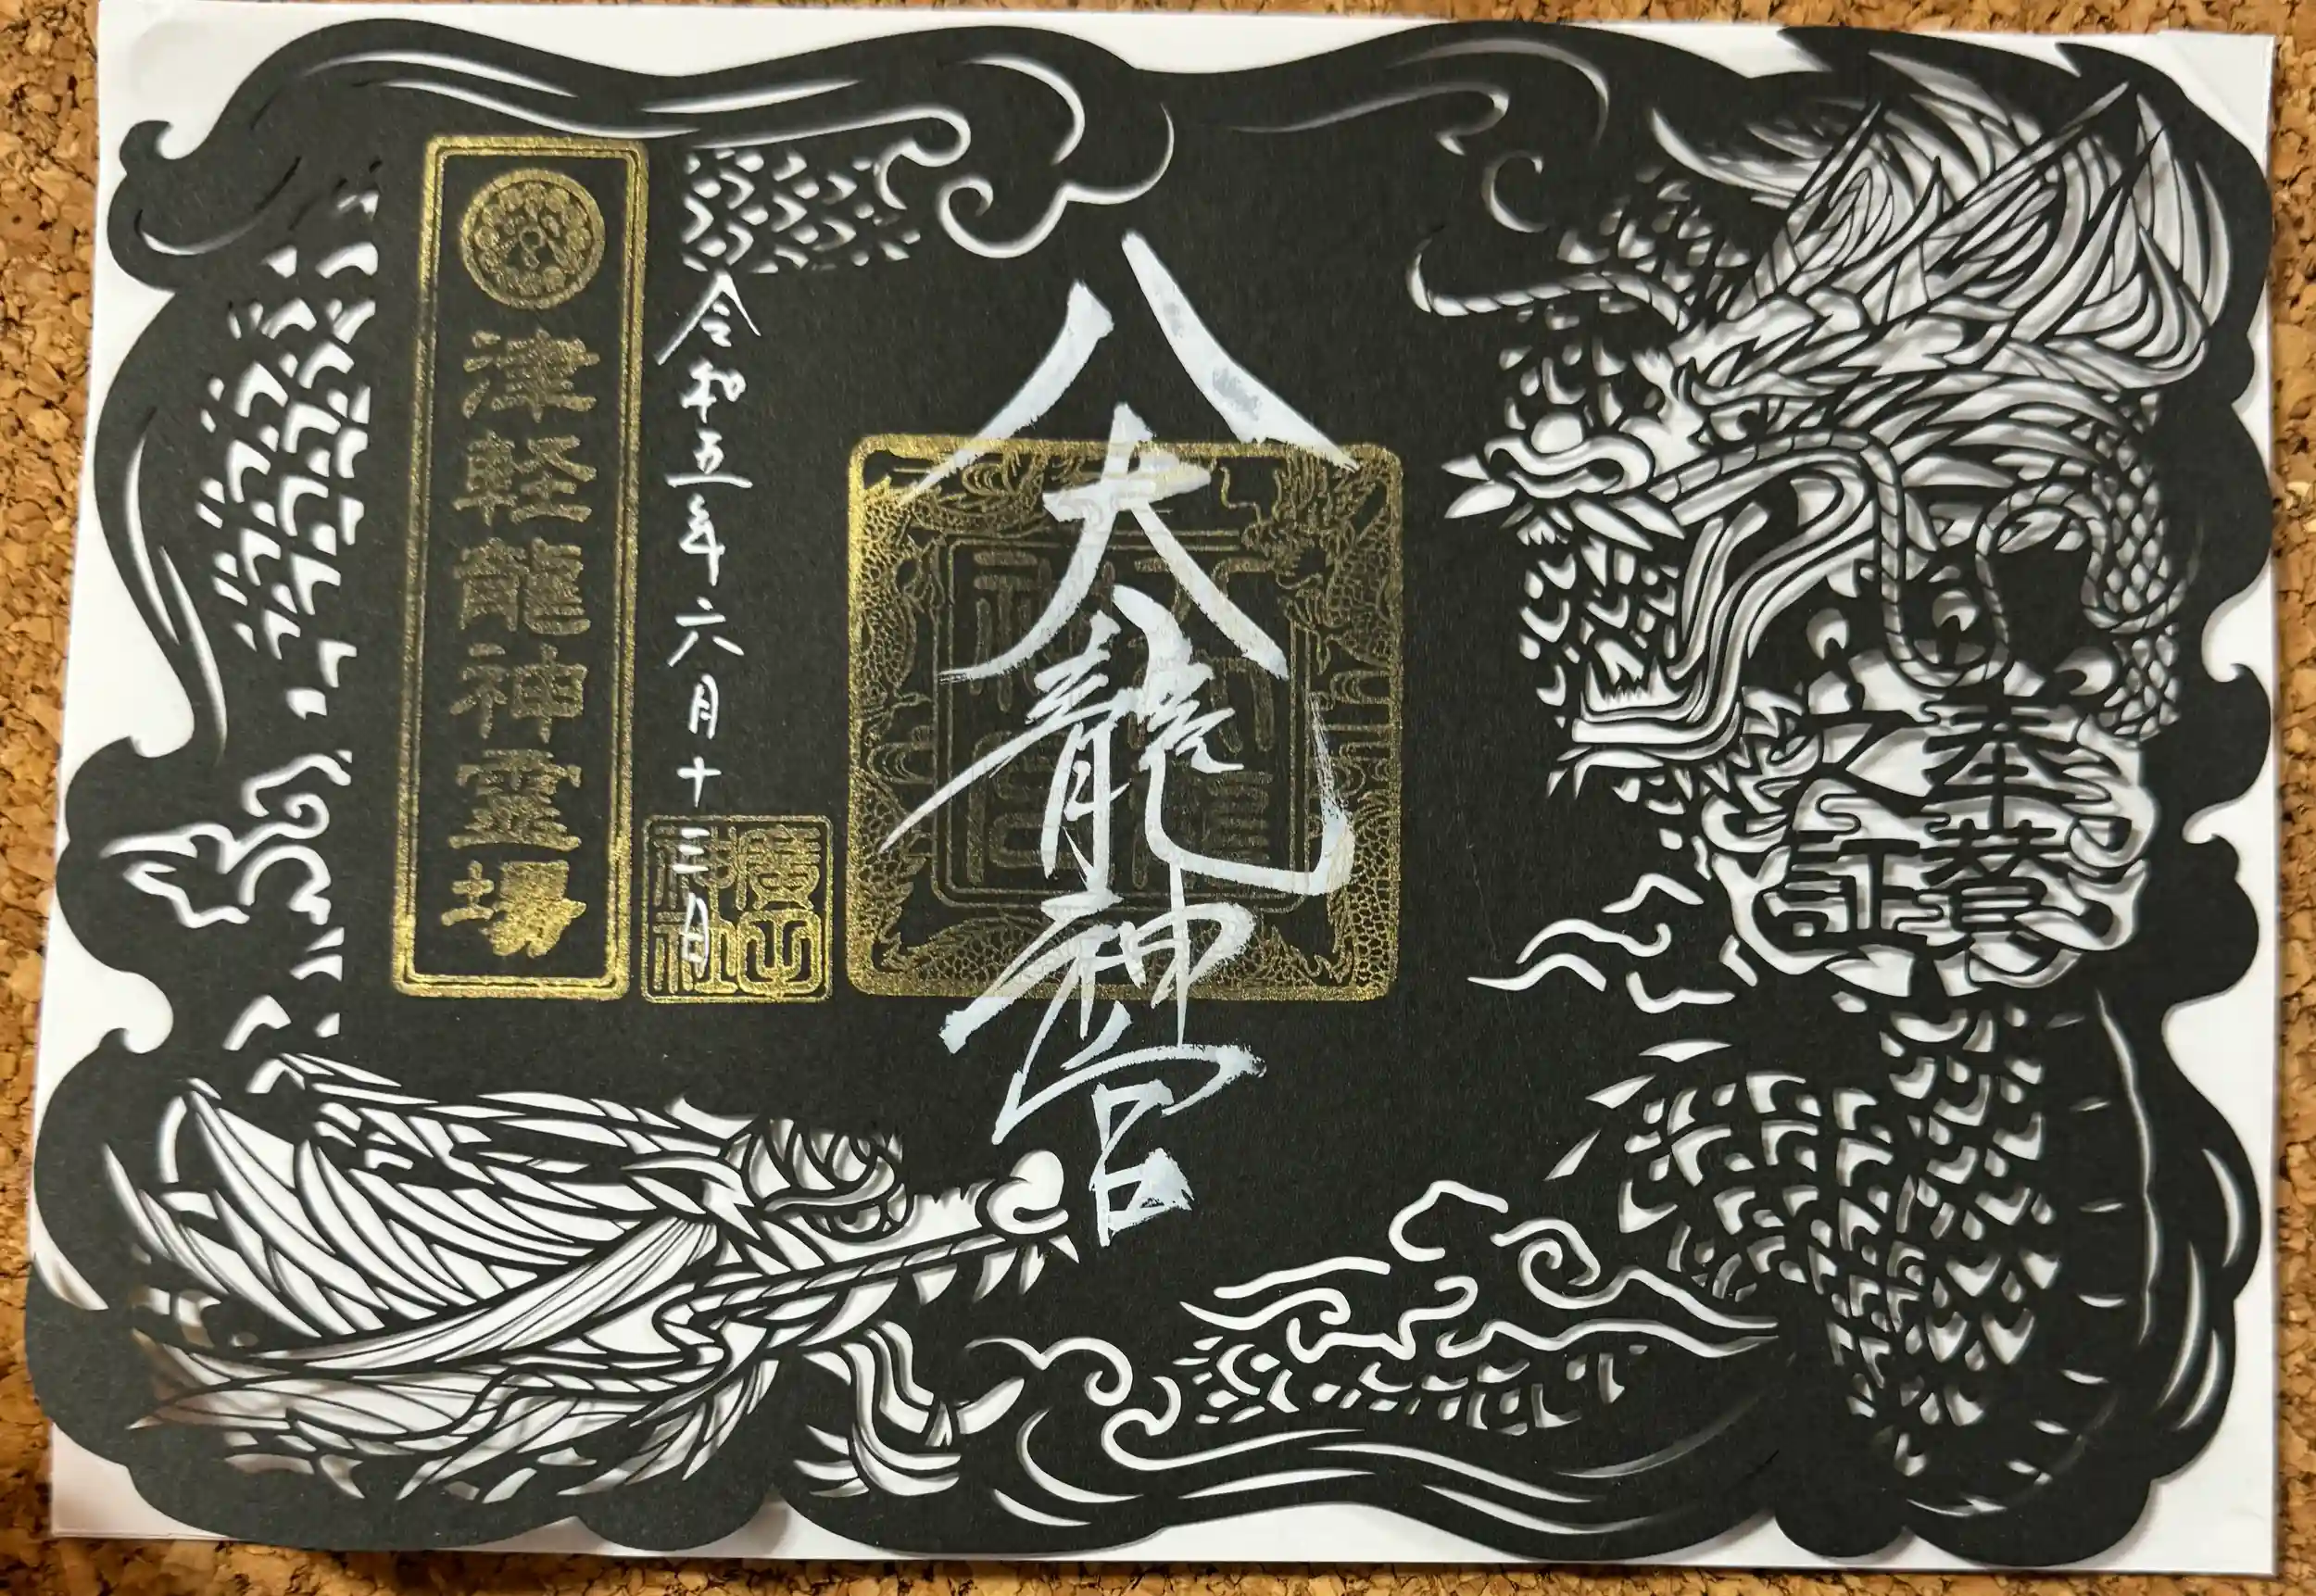 奉賛
之証
八大龍神宮
令和五年六月十三日
廣田
神社
津軽龍神霊場